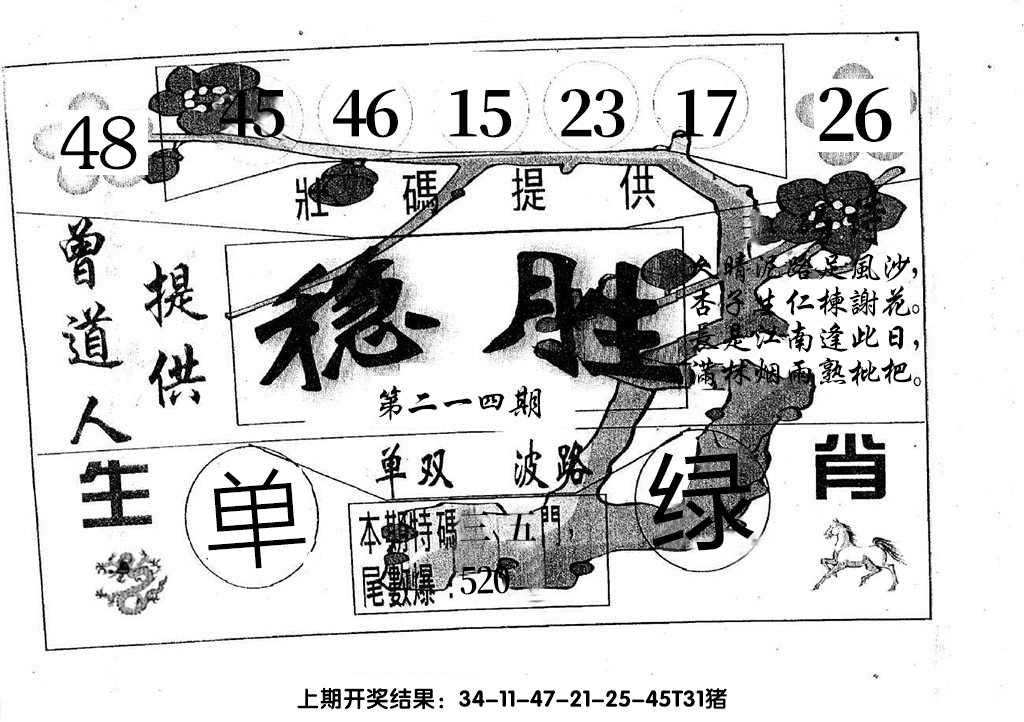 48 45 46 15 23 17 26
壯碼提供
曾道人
提供
稳胜
第二一四期
特
久晴泥路足風沙，
杏子生仁楝謝花。
長是江南逢此日，
滿林烟雨熟枇杷。
单双 波路
生肖
单
绿
本期特碼三、五門，
尾數爆：520
上期开奖结果：34-11-47-21-25-45T31猪